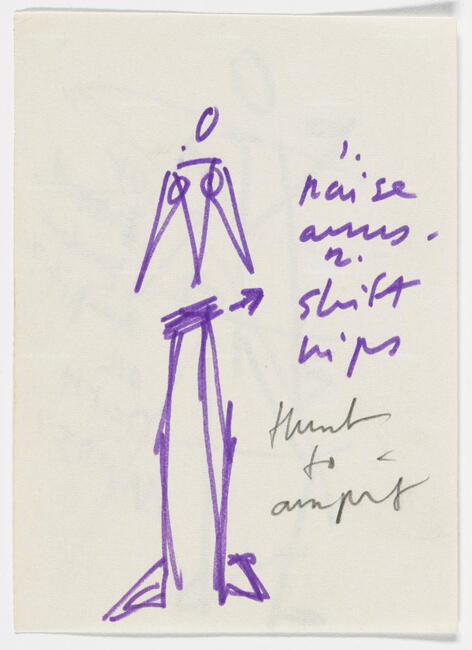 1.
raise
arms.
2.
shift
hips
thumbs
to
armpit